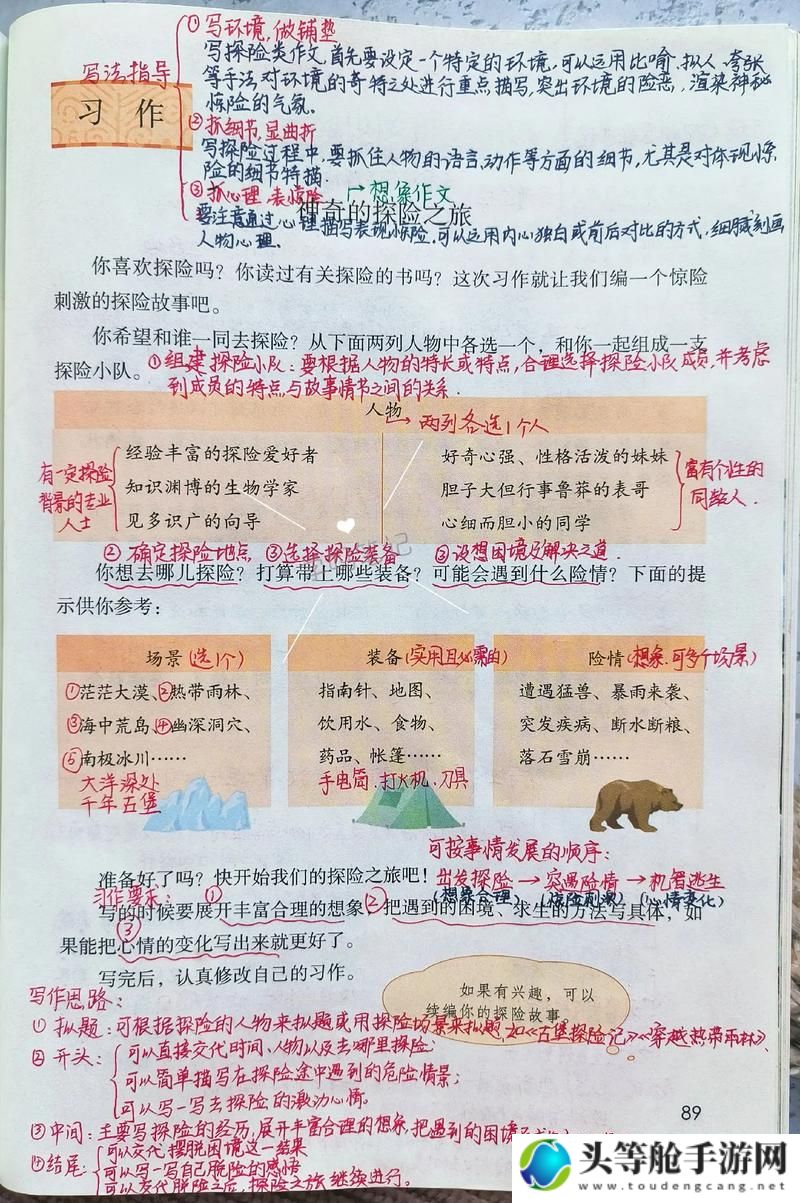 写法指导
①写环境,做铺垫
写探险类作文,首先要设定一个特定的环境,可以运用比喻、拟人、夸张
等手法对环境的奇特之处进行重点描写,突出环境的险恶,渲染神秘
惊险的气氛.
习 作
②抓细节,显曲折
写探险过程中,要抓住人物的语言、动作等方面的细节,尤其是对体现惊
险的细节特描.
③抓心理,表惊险
→想象作文
神奇的探险之旅
要注意通过心理描写表现惊险,可以运用内心独白或前后对比的方式,细腻刻画
人物心理.
你喜欢探险吗?你读过有关探险的书吗?这次习作就让我们编一个惊险
刺激的探险故事吧。
你希望和谁一同去探险?从下面两列人物中各选一个,和你一起组成一支
探险小队。
①组建探险小队:要根据人物的特长或特点,合理选择探险小队成员,并考虑
到成员的特点与故事情节之间的关系.
人物
→两列各选1个人
有一定探险
背景的专业
人士
经验丰富的探险爱好者
知识渊博的生物学家
见多识广的向导
好奇心强、性格活泼的妹妹
胆子大但行事鲁莽的表哥
心细而胆小的同学
富有个性的
同龄人.
②确定探险地点 ③选择探险装备 ③设想困境及解决之道.
你想去哪儿探险?打算带上哪些装备?可能会遇到什么险情?下面的提
示供你参考:
场景(选1个)
①茫茫大漠、②热带雨林、
③海中荒岛、④幽深洞穴、
⑤南极冰川……
大洋深处
千年古堡
装备(实用且必需的)
指南针、地图、
饮用水、食物、
药品、帐篷……
手电筒.打火机.刀具
险情(想象.可多个场景)
遭遇猛兽、暴雨来袭、
突发疾病、断水断粮、
落石雪崩……
可按事情发展的顺序:
准备好了吗?快开始我们的探险之旅吧!
出发探险→突遇险情→机智逃生
(想象合理) (惊险刺激) (心情变化)
习作要求: ① ②
写的时候要展开丰富合理的想象,把遇到的困境、求生的方法写具体,如
③
果能把心情的变化写出来就更好了。
写完后,认真修改自己的习作。
如果有兴趣,可以
续编你的探险故事。
写作思路:
①拟题:可根据探险的人物来拟题或用探险场景来拟题,如《古堡探险记》《穿越热带雨林》、
②开头:
可以直接交代时间、人物以及去哪里探险;
可以简单描写在探险途中遇到的危险情景;
可以写一写去探险的激动心情.
89
③中间:主要写探险的经历,展开丰富合理的想象,把遇到的困境
④结尾:
可以交代摆脱困境这一结果
可以写一写自己脱险的感悟
可以交代脱险之后,探险之旅继续进行.
头等舱手游网
www.toudengcang.net